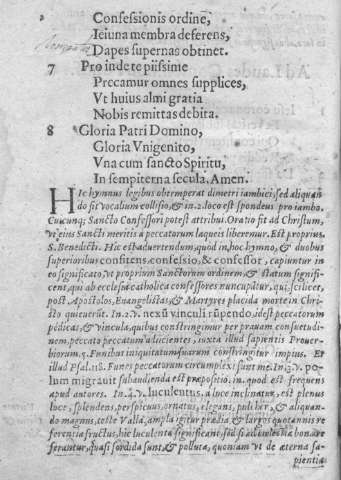 Confessionis ordine,
Ieiuna membra deferens,
Dapes supernas obtinet.
7 Pro inde te piissime
Precamur omnes supplices,
Vt huius almi gratia
Nobis remittas debita.
8 Gloria Patri Domino,
Gloria Vnigenito,
Vna cum sancto Spiritu,
In sempiterna secula. Amen.
HIc hymnus legibus obtemperat dimetri iambici, sed aliquan
do fit vocalium collisio, & in .2. loco est spondeus pro iambo.
Cuicunq; Sancto Confessori potest attribui. Oratio fit ad Christum,
vt eius Sancti meritis a peccatorum laqueis liberemur. Est proprius
S. Benedicti. Hic est aduertendum, quod in, hoc, hymno, & duobus
superioribus confitens, confessio, & confessor, capiuntur in
eo significato, vt proprium Sanctorum ordinem, & statum signifi-
cent, qui ab ecclesia catholica confessores nuncupatur, qui, scilicet,
post, Apostolos, Euangelistas, & Martyres placida morte in Chri-
sto quieuerūt. In .2. v. nexū vinculi rūpendo, idest peccatorum
pēdicas, & vincula, quibus constringimur per prauam consuetudi-
nem, peccato peccatum adiicientes, iuxta illud sapientis Prouer-
biorum, 5. Funibus iniquitatum suarum constringitur impius. Et
illud Psal. 118. Funes peccatorum circumplexi sunt me. In .3. v.
lum migrauit subaudienda est præpositio in, quod est frequens
apud autores. In .4. v. luculentus, a luce inclinatur, est plenus
luce, splendens, perspicuus, ornatus, elegans, pulcher, & aliquan-
do magnus, teste Valla, ampla igitur prædia & largos quotannis re
ferentia fructus, hic luculenta significant, sed si ad ecclesia bona re
ferantur, quasi sordida sunt, & polluta, quoniam vt de æterna sa-
pientia